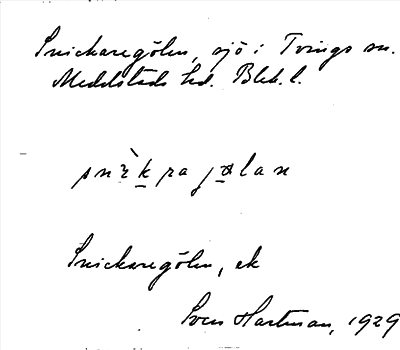 Snickaregölen, sjö i Tvings sn.
Medelstads hd. Blek. l.
snèkra jølan
Snickaregölen, ek
Sven Hartman, 1929